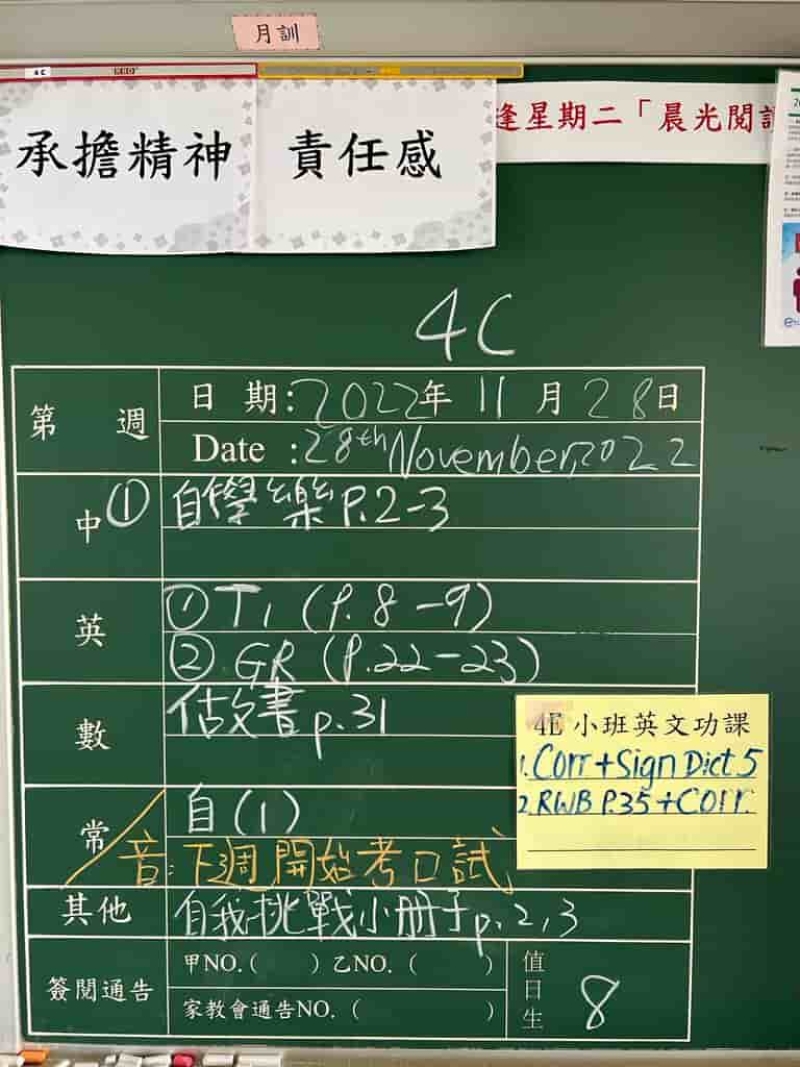 月訓
4C
承擔精神
責任感
逢星期二「晨光閱
4C
第 週
日 期:2022年 11 月 28日
Date :28th November, 2022
中
① 自學樂 P.2-3
英
① T1 (P.8-9)
② GR (P.22-23)
數
作文書 p.31
4E 小班英文功課
1. Corr + Sign Dict 5
2. RWB P.35 + Corr.
常
自(1)
音:下週開始考口試
其他
自我挑戰小册子 p.2,3
簽閱通告
甲NO.( ) 乙NO.( )
家教會通告NO.( )
值日生
8